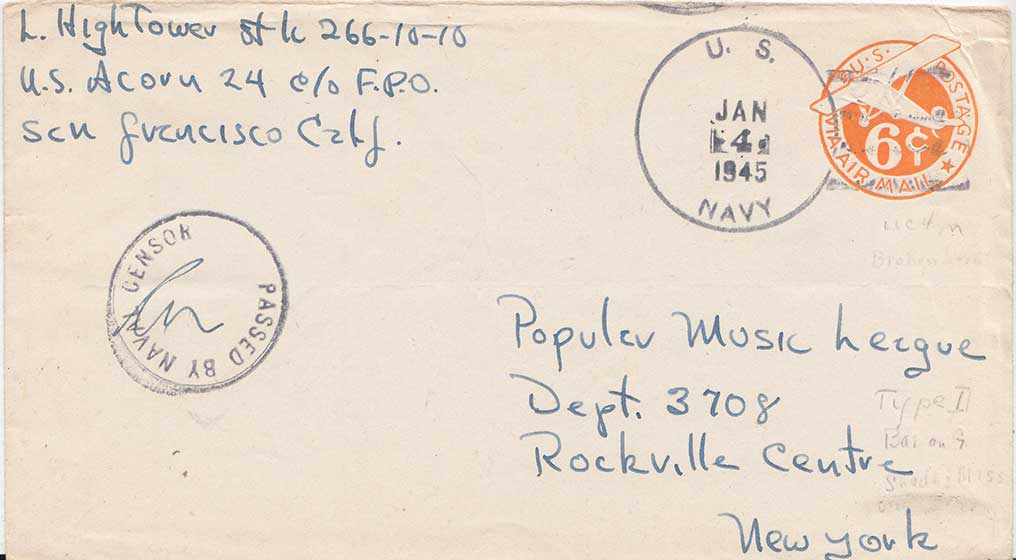 L. HighTower St k 266-10-10
U.S. Acorn 24 c/o F.P.O.
San Francisco Calf.
U. S.
JAN
4
1945
NAVY
U.S. POSTAGE
6¢
VIA AIR MAIL
PASSED BY NAVAL CENSOR
Popular Music League
Dept. 3708
Rockville Centre
New York
Type I
Bar on G